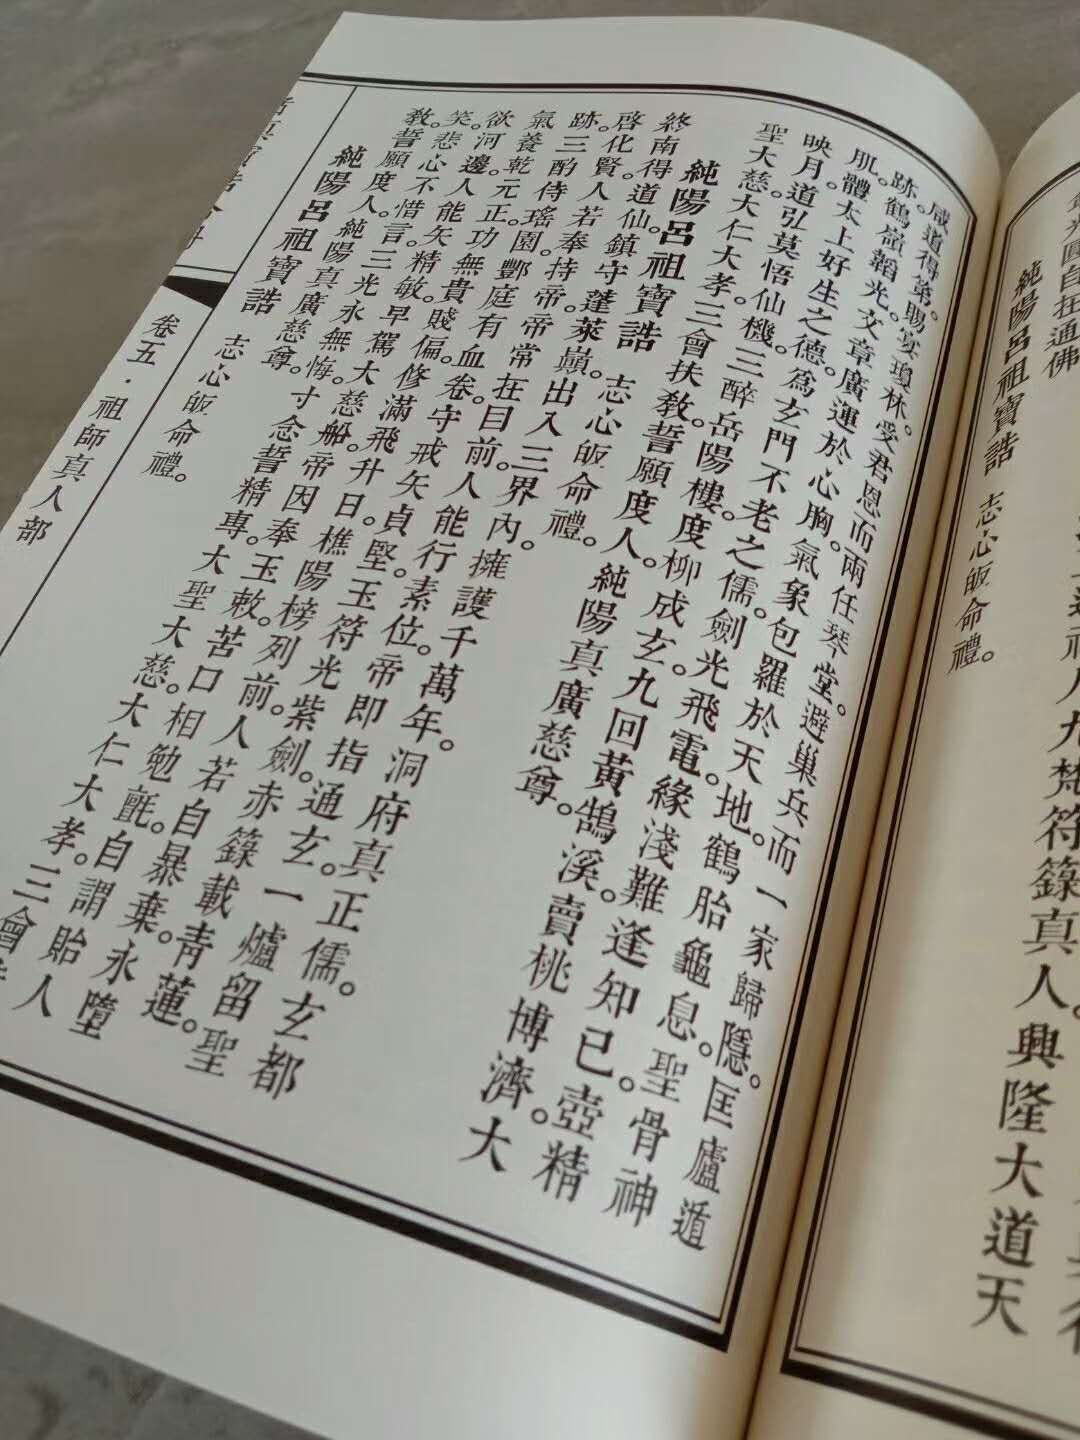 八九梵符籙真人。興隆大道天
光圓自在通佛
純陽呂祖寶誥 志心皈命禮。
咸道得第。賜宴瓊林。受君恩而兩任琴堂。避巢兵而一家歸隱。匡廬遁
跡。鶴嶺韜光。文章廣運於心胸。氣象包羅於天地。鶴胎龜息。聖骨神
肌。體太上好生之德。爲玄門不老之儒。劍光飛電。緣淺難逢知已。壺精
映月。道弘莫悟仙機。三醉岳陽樓。度柳成玄。九回黃鵠溪。賣桃博濟。大
聖大慈。大仁大孝。三會扶教。誓願度人。純陽真廣慈尊。
純陽呂祖寶誥 志心皈命禮。
終南得道仙。鎮守蓬萊巔。出入三界內。擁護千萬年。洞府真正儒。玄都
啓化賢。人若奉持帝。帝常在目前。人能行素位。帝即指通玄。一爐留聖
跡。三酌侍瑤園。酆庭有血卷。守戒矢貞堅。玉符光紫劍。赤籙載青蓮。
氣養乾元正。功無貴賤偏。修滿飛升日。樵陽榜列前。人若自暴棄。永墮
欲河邊。人能矢精敏。早駕大慈船。帝因奉玉敕。苦口相勉氈。自謂貽人
笑。悲心不惜言。三光永無悔。寸念誓精專。大聖大慈。大仁大孝。三會
教。誓願度人。純陽真廣慈尊。
純陽呂祖寶誥 志心皈命禮。
卷五·祖師真人部